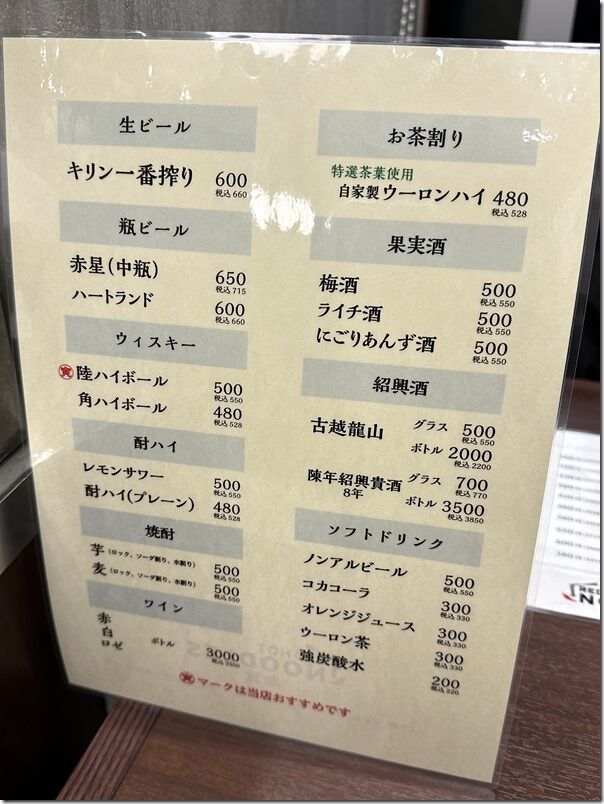 生ビール
キリン一番搾り 600
税込 660
瓶ビール
赤星(中瓶) 650
税込 715
ハートランド 600
税込 660
ウィスキー
陸ハイボール 500
税込 550
角ハイボール 480
税込 528
酎ハイ
レモンサワー 500
税込 550
酎ハイ(プレーン) 480
税込 528
焼酎
芋(ロック、ソーダ割り、水割り) 500
税込 550
麦(ロック、ソーダ割り、水割り) 500
税込 550
ワイン
赤
白 ボトル 3000
ロゼ 税込 3300
マークは当店おすすめです
お茶割り
特選茶葉使用
自家製ウーロンハイ 480
税込 528
果実酒
梅酒 500
税込 550
ライチ酒 500
税込 550
にごりあんず酒 500
税込 550
紹興酒
古越龍山 グラス 500
税込 550
ボトル 2000
税込 2200
陳年紹興貴酒 グラス 700
税込 770
8年 ボトル 3500
税込 3850
ソフトドリンク
ノンアルビール 500
税込 550
コカコーラ 300
税込 330
オレンジジュース 300
税込 330
ウーロン茶 300
税込 330
強炭酸水 200
税込 220